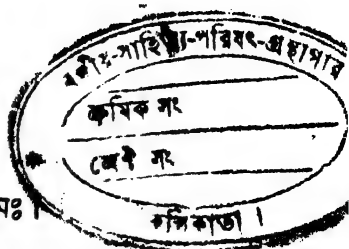 বঙ্গীয়-সাহিত্য-পরিষৎ-গ্রন্থাগার
ক্রমিক সং
শ্রেণী সং
কলিকাতা ।
মঃ ।